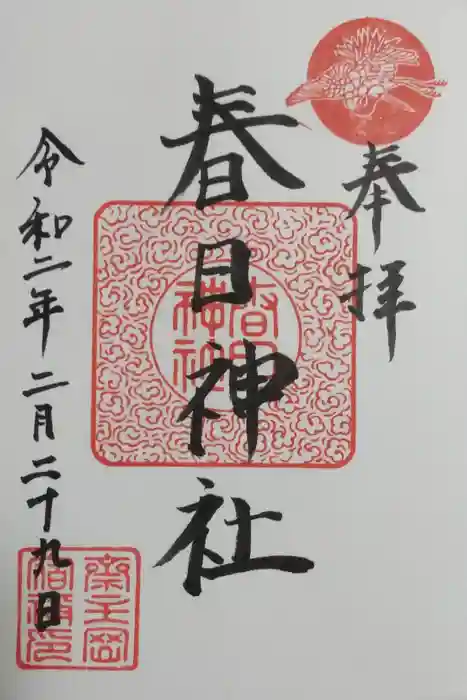 奉拝
春日神社
令和二年二月二十九日
春日神社